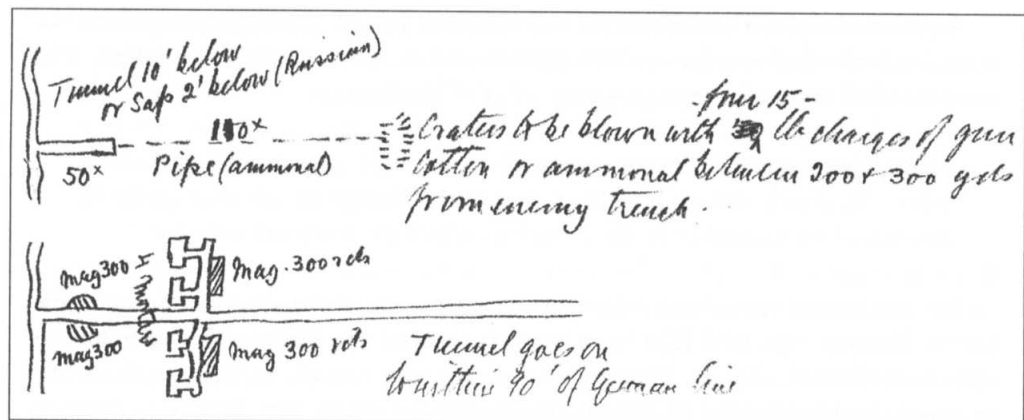 Tunnel 10' below
or Sap 2' below (Russian)
50x
Pipe (ammonal)
- four 15 -
Craters to be blown with lb charges of gun
Cotton or ammonal between 200 & 300 yds
from enemy trench.
Mag 300
4 Mortars
Mag. 300 rds
Mag 300
Mag 300 rds
Tunnel goes on
to within 90' of German line